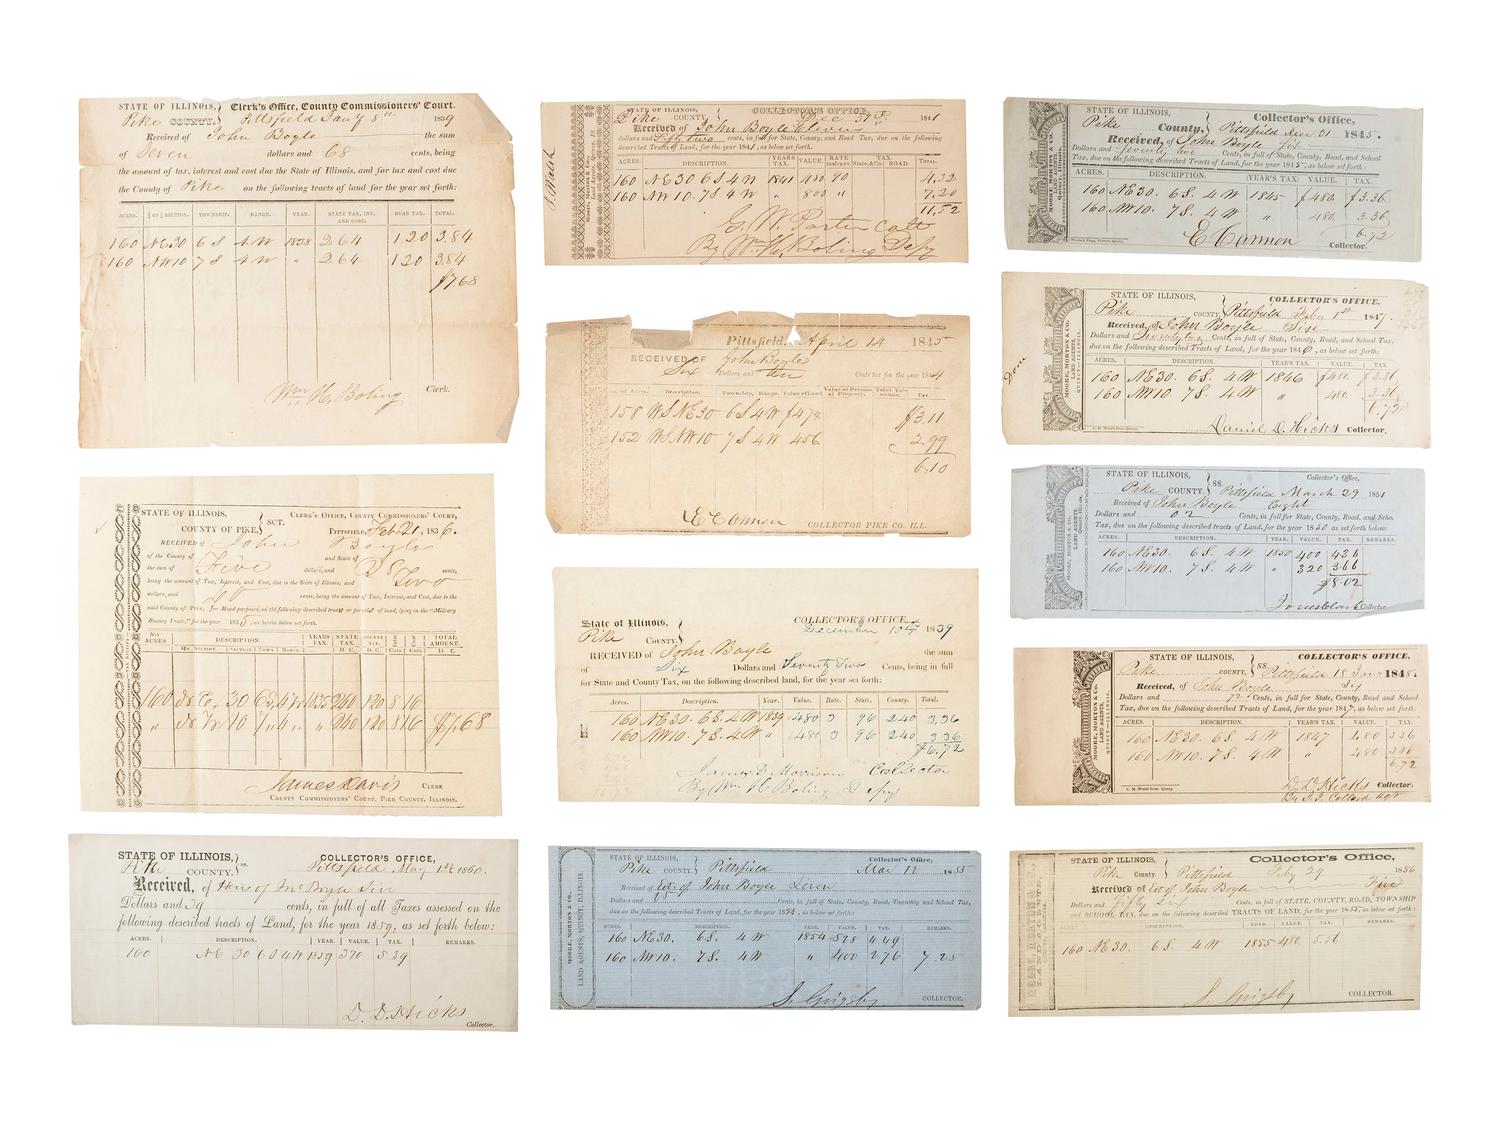 STATE OF ILLINOIS, Clerk's Office, County Commissioners' Court.
Pike COUNTY. Pittsfield Jany 8th 1839
Received of John Boyle the sum
of Seven dollars and 68 cents, being
the amount of tax, interest and cost due the State of Illinois, and for tax and cost due
the County of Pike on the following tracts of land for the year set forth:
ACRES. ¼ OF SECTION. TOWNSHIP. RANGE. YEAR. STATE TAX, INT. AND COST. ROAD TAX. TOTAL.
160 NE 30 6 S 4 W 1838 2.64 1.20 3.84
160 NW 10 7 S 4 W " 2.64 1.20 3.84
$7.68
Wm H. Boling Clerk.
STATE OF ILLINOIS, SCT. CLERK'S OFFICE, COUNTY COMMISSIONERS' COURT,
COUNTY OF PIKE, PITTSFIELD, Feb 21, 1836.
RECEIVED of John Boyle
of the County of and State of
the sum of Five dollars, and cents,
being the amount of Tax, Interest, and Cost, due to the State of Illinois; and Two
dollars, and cents, being the amount of Tax, Interest, and Cost, due to the
said County of PIKE, for Road purposes, on the following described tracts or parcels of land, lying in the "Military
Bounty Tract," for the year 1835, as herein below set forth.
NO. ACRES DESCRIPTION. YEARS TAX. STATE TAX. COUNTY TAX. TOTAL AMOUNT.
160 30 6 S. 4 W 1835 240 120 8 16
" 10 7 " 4 " " 240 120 8 16 $7.68
James Davis CLERK
COUNTY COMMISSIONERS' COURT, PIKE COUNTY, ILLINOIS.
STATE OF ILLINOIS, ss. COLLECTOR'S OFFICE,
Pike COUNTY. Pittsfield May 1st 1860.
Received, of Heirs of Boyle Five
Dollars and 39 cents, in full of all Taxes assessed on the
following described tracts of Land, for the year 1859, as set forth below:
ACRES. DESCRIPTION. YEAR. VALUE. TAX. REMARKS.
160 NE 30 6 S 4 W 1859 5.39
D. D. Hicks
Collector.
STATE OF ILLINOIS, COLLECTOR'S OFFICE,
Pike COUNTY 31st 1841
Received of John Boyle Eleven
dollars and Fifty two cents, in full for State, County, and Road Tax, due on the following
described Tracts of Land, for the year 1841, as below set forth.
ACRES. DESCRIPTION. YEARS TAX. VALUE. RATE TAX. ROAD. TOTAL.
160 NE 30 6 S 4 W 1841 480 90 4.32
160 NW 10. 7 S 4 W " 800 " 7.20
11,52
G. W. Porter
By Wm H. Boling Depy
Pittsfield, April 14 1845
RECEIVED OF John Boyle
Six Dollars and ten Cents tax for the year 1844
No. of Acres. Description. Township. Range. Value of Land. Value of Personal Property. Total Valuation. Tax.
158 W.S. NE 30 6 S 4 W $474 $3.11
152 W.S. NW 10 7 S 4 W 456 2.99
6.10
E Cannon COLLECTOR PIKE CO. ILL.
State of Illinois, COLLECTOR'S OFFICE,
Pike COUNTY. December 10th 1839
RECEIVED of John Boyle the sum
of Six Dollars and Seventy Two Cents, being in full
for State and County Tax, on the following described land, for the year set forth:
Acres. Description. Year. Value. Rate. State. County. Total.
160 NE 30. 6 S. 4 W 1839 480 96 2.40 3,36
160 NW 10. 7 S. 4 W " 480 96 2.40 3 36
$6,72
James D Morrison Collector
By Wm H Boling Depy
MOORE, MORTON & CO.
LAND AGENTS, QUINCY, ILLINOIS.
STATE OF ILLINOIS, Collector's Office,
Pike COUNTY. Pittsfield Mar 12 1855
Received of Est of John Boyle Seven
Dollars and Cents, in full for State, County, Road, Township and School Tax,
due on the following described Tracts of Land, for the year 1854, as below set forth.
ACRES. DESCRIPTION. YEAR. VALUE. TAX. REMARKS.
160 NE 30. 6 S. 4 W 1854 528 4.49
160 NW 10. 7 S. 4 W " 400 2.76 7.25
S. Grigsby COLLECTOR.
STATE OF ILLINOIS, Collector's Office,
Pike County, Pittsfield 1845.
Received, of John Boyle Six
Dollars and Seventy two Cents, in full for State, County, Road, and School
Tax, due on the following described Tracts of Land, for the year 1845, as below set forth:
ACRES. DESCRIPTION. YEAR'S TAX. VALUE. TAX.
160 NE 30. 6 S. 4 W 1845 $480. $3.36
160 NW 10. 7 S. 4 W " 480. 3.36
6.72
E. Cannon Collector.
Done
MOORE, MORTON & CO.
LAND AGENTS,
QUINCY—ILLINOIS.
STATE OF ILLINOIS, COLLECTOR'S OFFICE,
Pike COUNTY, Pittsfield Feby 1st 1847.
Received, of John Boyle Six
Dollars and Seventy two Cents, in full, for State, County, Road, and School Tax,
due on the following described Tracts of Land, for the year 1846, as below set forth:
ACRES. DESCRIPTION. YEAR'S TAX. VALUE. TAX.
160 NE 30. 6 S. 4 W 1846 $480. $3.36
160 NW 10. 7 S. 4 W " 480. 3.36
6.72
Daniel D. Hicks Collector.
STATE OF ILLINOIS, SS. Collector's Office,
Pike COUNTY. Pittsfield March 29 1851
Received of John Boyle Eight
Dollars and 02 Cents, in full for State, County, Road, and Scho.
Tax, due on the following described Tracts of Land, for the year 1850 as set forth below:
ACRES. DESCRIPTION. YEAR. VALUE. TAX. REMARKS.
160 NE 30. 6 S. 4 W 1850 400 4.36
160 NW 10. 7 S. 4 W " 320 3.66
$8.02
Collector
MOORE, MORTON & CO.
LAND AGENTS,
QUINCY—ILLINOIS.
STATE OF ILLINOIS, SS. COLLECTOR'S OFFICE.
Pike COUNTY, Pittsfield 18 Jany 1848.
Received, of John Boyle Six
Dollars and 72 Cents, in full for State, County, Road and School
Tax, due on the following described Tracts of Land, for the year 1847, as below set forth:
ACRES. DESCRIPTION. YEAR'S TAX. VALUE. TAX.
160 NE 30. 6 S. 4 W 1847 480 3 36
160 NW 10. 7 S. 4 W " 480 3 36
6,72
D. D. Hicks Collector.
STATE OF ILLINOIS, Collector's Office,
Pike County Pittsfield Feby 29 1856
Received of Est of John Boyle Five
Dollars and Fifty six Cents, in full of STATE, COUNTY, ROAD, TOWNSHIP
and SCHOOL TAX, due on the following described TRACTS OF LAND, for the year 1855, as below set forth:
ACRES. DESCRIPTION. YEAR. VALUE. TAX. REMARKS.
160 NE 30. 6 S. 4 W 1855 480. 5.56
S. Grigsby COLLECTOR.